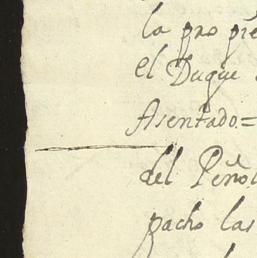 la pro pie
el Duque
Asentado.=
del Peño
pacho las